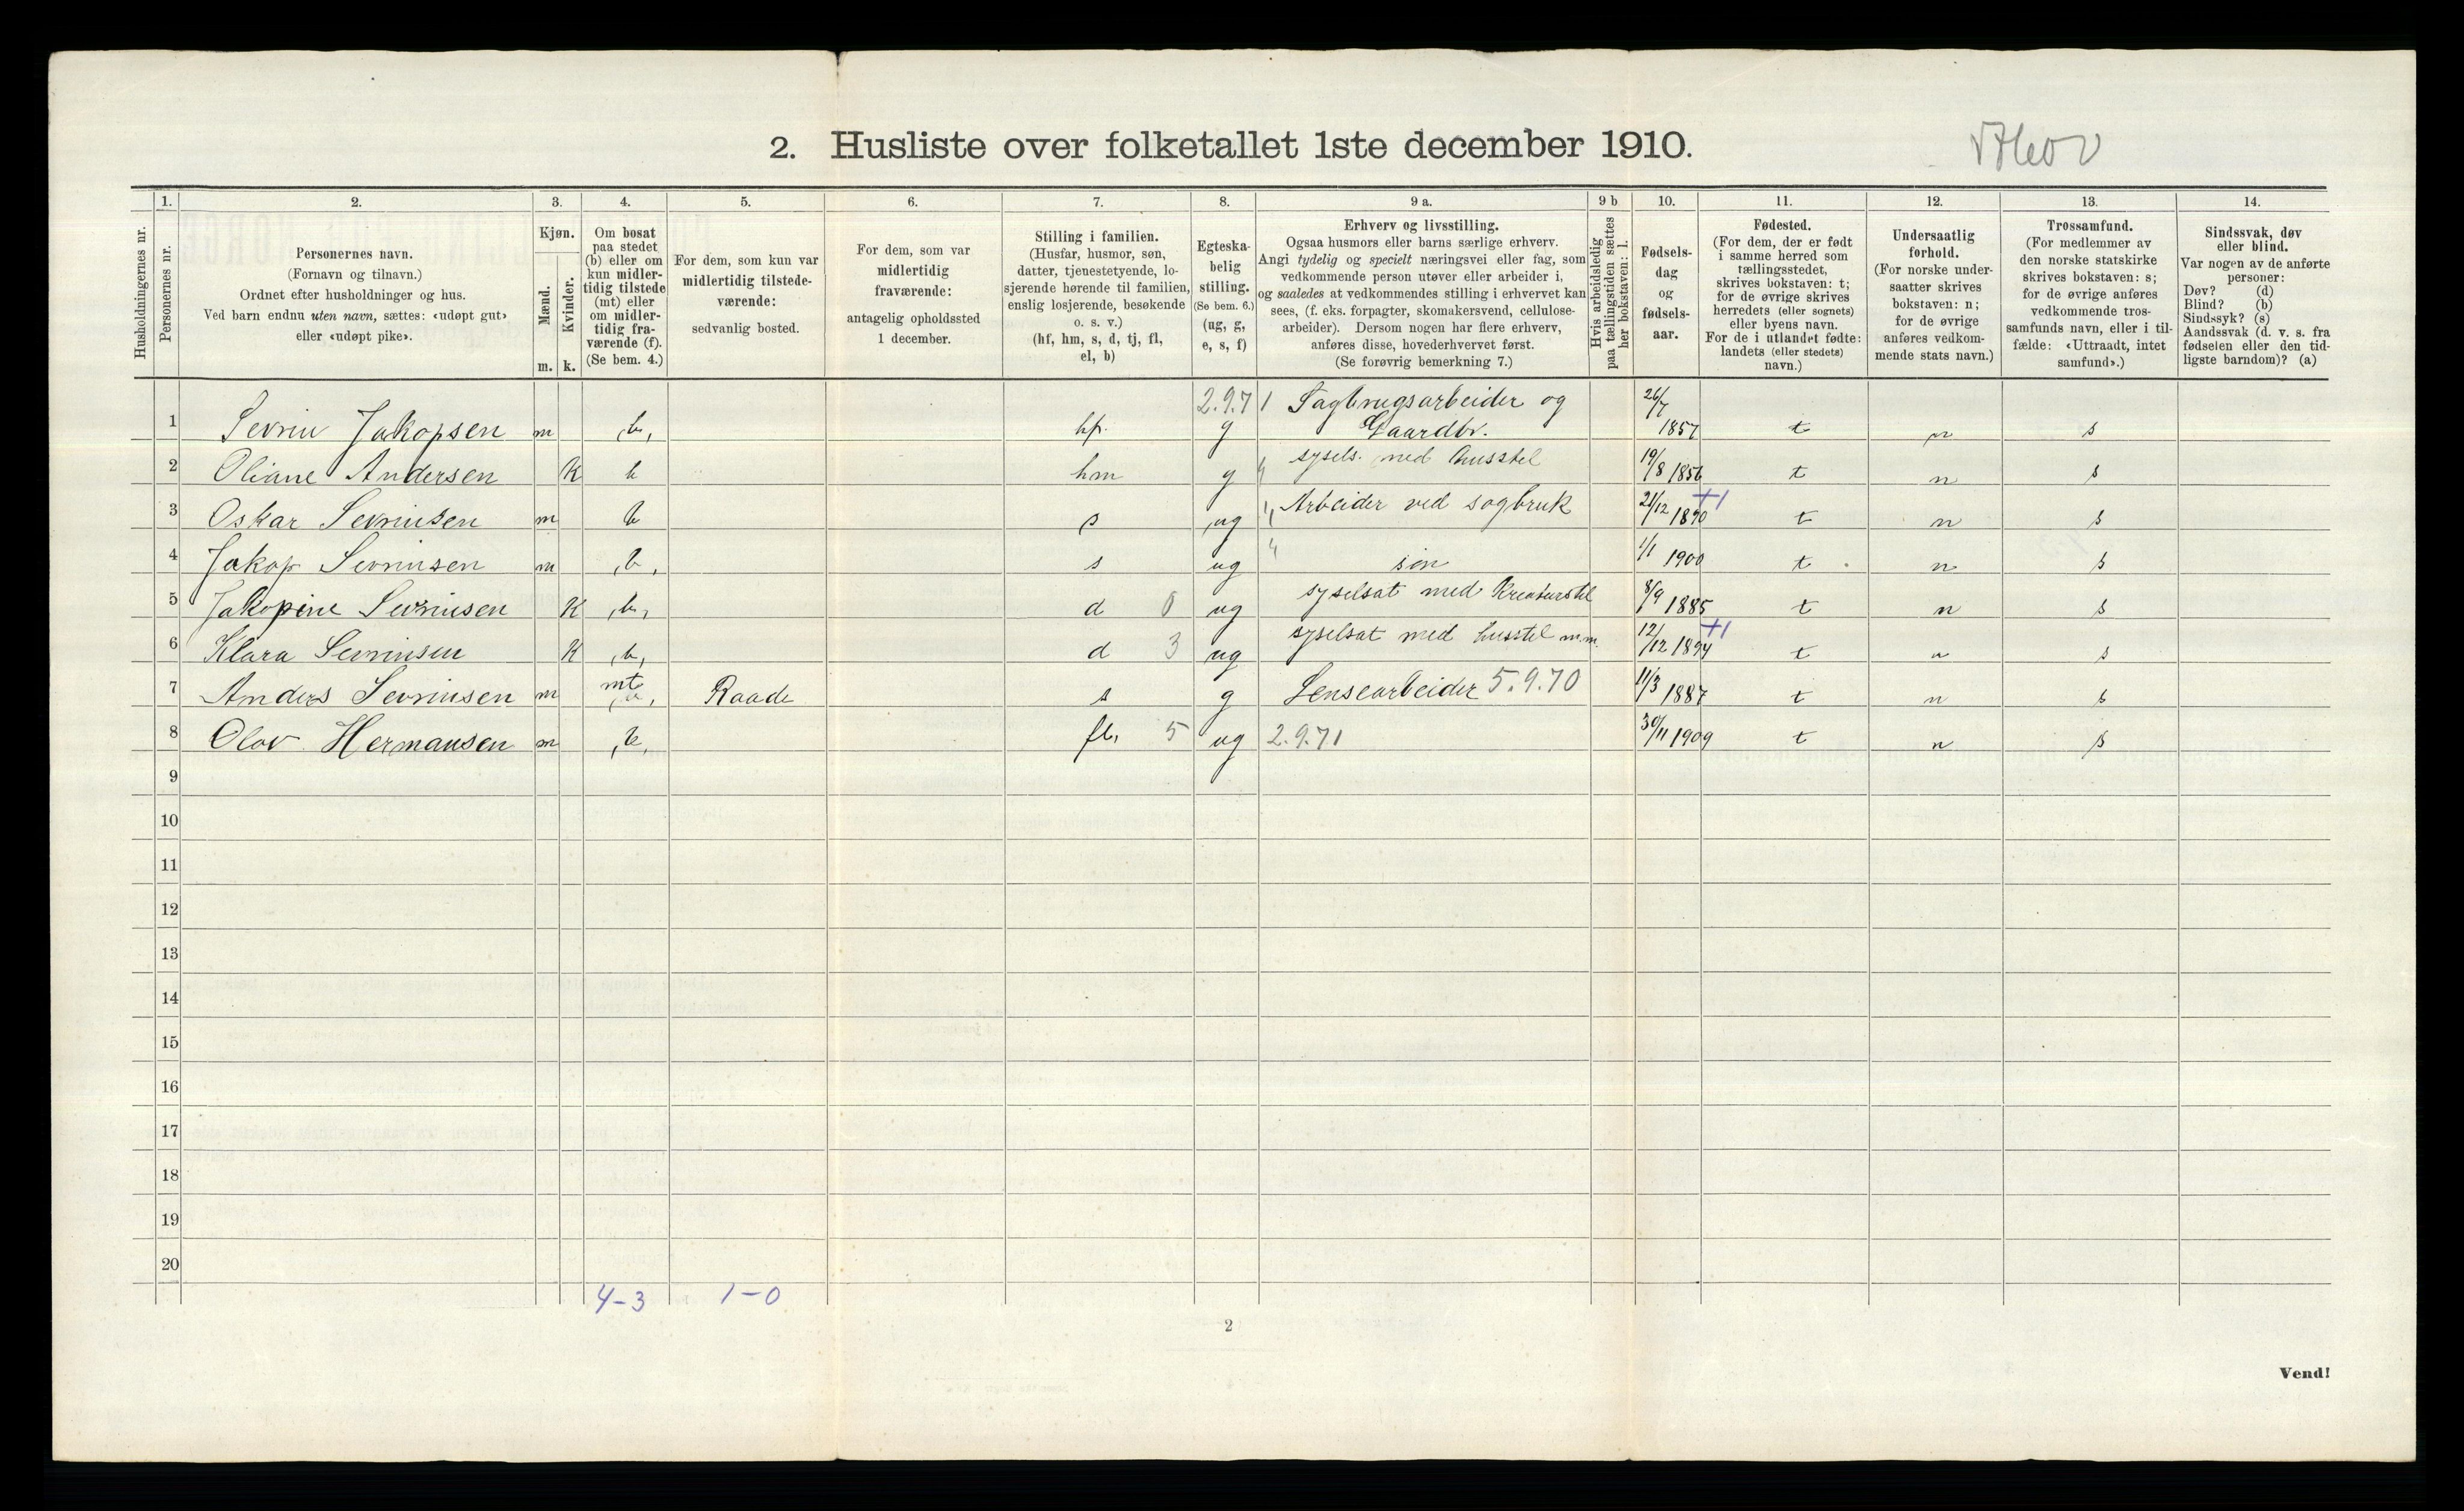 2. Husliste over folketallet 1ste december 1910.
Husholdningernes nr.
1.
Personernes nr.
2.
Personernes navn.
(Fornavn og tilnavn.)
Ordnet efter husholdninger og hus.
Ved barn endnu uten navn, sættes: «udøpt gut»
eller «udøpt pike».
3.
Kjøn.
Mænd.
Kvinder.
m. k.
4.
Om bosat
paa stedet
(b) eller om
kun midler-
tidig tilstede
(mt) eller
om midler-
tidig fra-
værende (f).
(Se bem. 4.)
5.
For dem, som kun var
midlertidig tilstede-
værende:
sedvanlig bosted.
6.
For dem, som var
midlertidig
fraværende:
antagelig opholdssted
1 december.
7.
Stilling i familien.
(Husfar, husmor, søn,
datter, tjenestetyende, lo-
sjerende hørende til familien,
enslig losjerende, besøkende
o. s. v.)
(hf, hm, s, d, tj, fl,
el, b)
8.
Egteska-
belig
stilling.
(Se bem. 6.)
(ug, g,
e, s, f)
9 a.
Erhverv og livsstilling.
Ogsaa husmors eller barns særlige erhverv.
Angi tydelig og specielt næringsvei eller fag, som
vedkommende person utøver eller arbeider i,
og saaledes at vedkommendes stilling i erhvervet kan
sees, (f. eks. forpagter, skomakersvend, cellulose-
arbeider). Dersom nogen har flere erhverv,
anføres disse, hovederhvervet først.
(Se forøvrig bemerkning 7.)
9 b
Hvis arbeidsledig
paa tællingstiden sættes
her bokstaven: l.
10.
Fødsels-
dag
og
fødsels-
aar.
11.
Fødested.
(For dem, der er født
i samme herred som
tællingsstedet,
skrives bokstaven: t;
for de øvrige skrives
herredets (eller sognets)
eller byens navn.
For de i utlandet fødte:
landets (eller stedets)
navn.)
12.
Undersaatlig
forhold.
(For norske under-
saatter skrives
bokstaven: n;
for de øvrige
anføres vedkom-
mende stats navn.)
13.
Trossamfund.
(For medlemmer av
den norske statskirke
skrives bokstaven: s;
for de øvrige anføres
vedkommende tros-
samfunds navn, eller i til-
fælde: «Uttraadt, intet
samfund».)
14.
Sindssvak, døv
eller blind.
Var nogen av de anførte
personer:
Døv? (d)
Blind? (b)
Sindssyk? (s)
Aandssvak (d. v. s. fra
fødselen eller den tid-
ligste barndom)? (a)
2.9.71 Sagbrugsarbeider og 26/7
1 Sevrin Jakopsen m b hf. g Gaardbr. 1857 t n s
2 Oliane Andersen K b hm g sysels. med husstel 19/8 1856 t n s
3 Oskar Sevrinsen m b s ug Arbeider ved sagbruk 21/12 1890 +1 t n s
4 Jakop Sevrinsen m b s ug søn 1/1 1900 t n s
5 Jakopine Sevrinsen K b d 0 ug syselsat med Kreaturstel 8/9 1885 t n s
6 Klara Sevrinsen K b d 3 ug syselsat med husstel m.m. 12/12 1894 +1 t n s
7 Anders Sevrinsen m mt Raade s g Lensearbeider 5.9.70 11/3 1887 t n s
8 Olav Hermansen m b fl. 5 ug 2.9.71 30/11 1909 t n s
9
10
11
12
13
14
15
16
17
18
19
20
4-3 1-0
2
Vend!